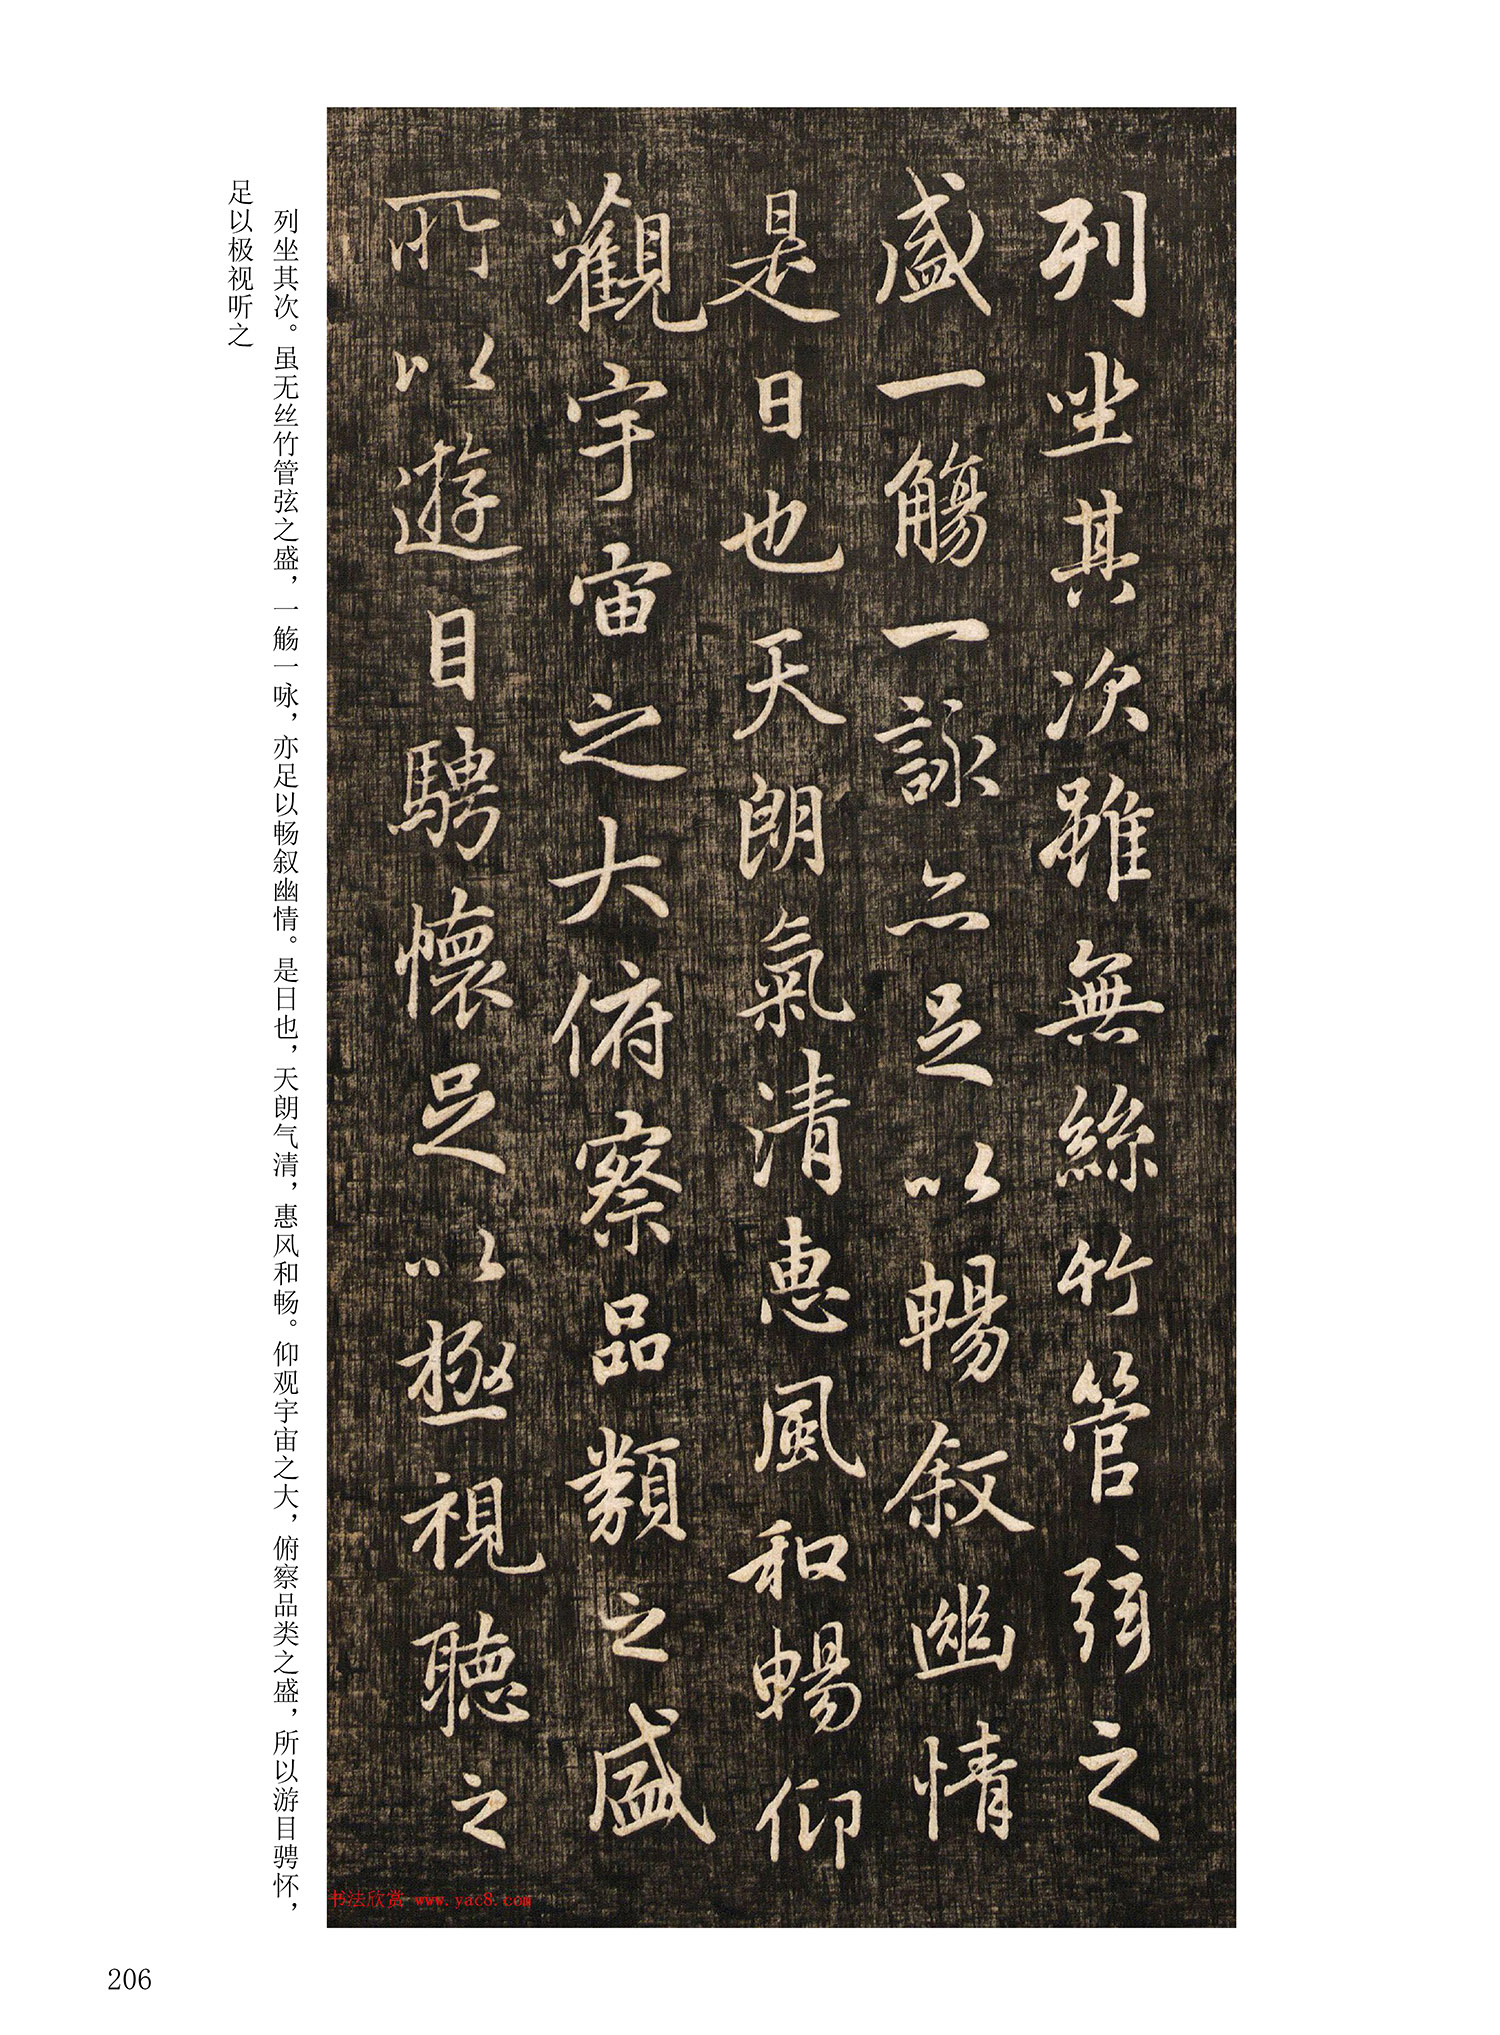 列坐其次雖無絲竹管弦之
盛一觴一詠亦足以暢敘幽情
是日也天朗氣清惠風和暢仰
觀宇宙之大俯察品類之盛
所以遊目騁懷足以極視聽之
列坐其次。虽无丝竹管弦之盛，一觞一咏，亦足以畅叙幽情。是日也，天朗气清，惠风和畅。仰观宇宙之大，俯察品类之盛，所以游目骋怀，
足以极视听之
书法欣赏 www.yac8.com
206